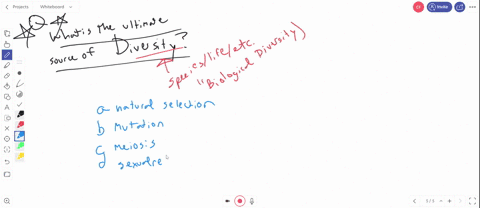 Q
What is the ultimate
source of Diversity?
species/life/etc.
"Biological Diversity)
a natural selection
b mutation
c meiosis
d sexual re
CF
Invite
1/1